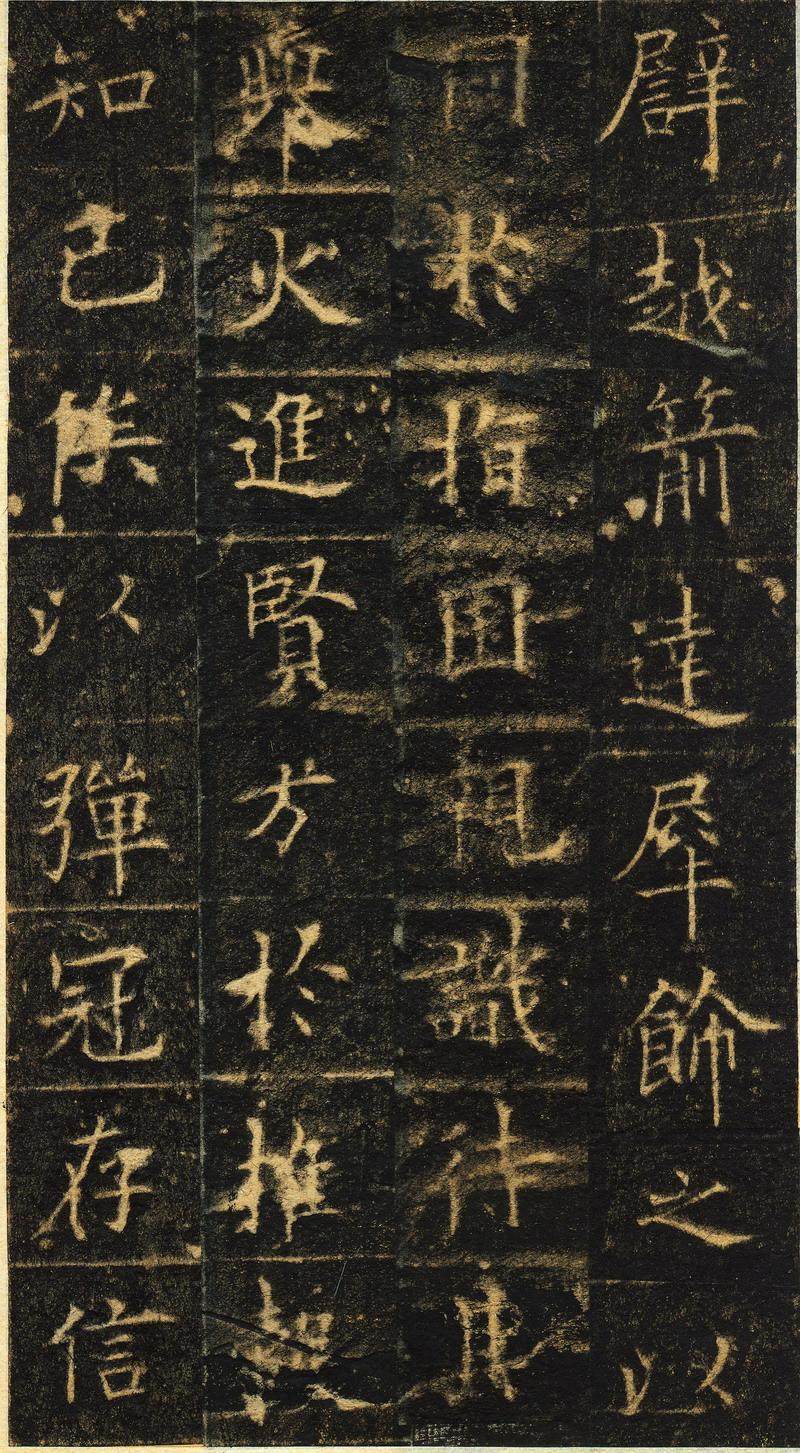 譬越箭達犀飾之以
同於指囷親識待其
舉火進賢方於推轂
知己俟以彈冠存信